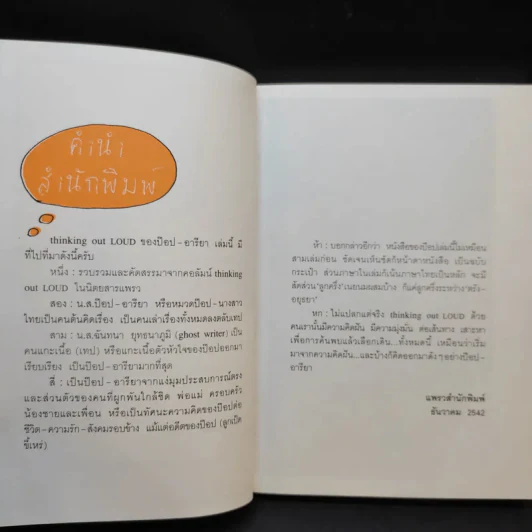 คำนำ
สำนักพิมพ์
thinking out LOUD ของป๊อป-อารียา เล่มนี้ มี
ที่ไปที่มาดังนี้ครับ
หนึ่ง : รวบรวมและคัดสรรมาจากคอลัมน์ thinking
out LOUD ในนิตยสารแพรว
สอง : น.ส.ป๊อป-อารียา หรือหมวดป๊อป-นางสาว
ไทยเป็นคนต้นคิดเรื่อง เป็นคนเล่าเรื่องทั้งหมดลงตลับเทป
สาม : น.ส.ฉันทนา ยุทธนาภูมิ (ghost writer) เป็น
คนแกะเนื้อ (เทป) หรือแกะเนื้อตัวหัวใจของป๊อปออกมา
เรียบเรียง เป็นป๊อป-อารียามากที่สุด
สี่ : เป็นป๊อป-อารียาจากแง่มุมประสบการณ์ตรง
และส่วนตัวของคนที่ผูกพันใกล้ชิด พ่อแม่ ครอบครัว
น้องชายและเพื่อน หรือเป็นทัศนะความคิดของป๊อปต่อ
ชีวิต-ความรัก-สังคมรอบข้าง แม้แต่อดีตของป๊อป (ลูกเป็ด
ขี้เหร่)
ห้า : บอกกล่าวอีกว่า หนังสือของป๊อปเล่มนี้ไม่เหมือน
สามเล่มก่อน ชัดเจนเห็นชัดก็หน้าตาหนังสือ เป็นฉบับ
กระเป๋า ส่วนภาษาในเล่มก็เน้นภาษาไทยเป็นหลัก จะมี
สัดส่วน“ลูกครึ่ง”แน่นอนผสมบ้าง ก็แค่ลูกครึ่งระหว่าง“ฝรั่ง-
อยุธยา”
หก : ไม่แปลกแต่จริง thinking out LOUD ด้วย
คนเรานั้นมีความคิดฝัน มีความมุ่งมั่น ต่อเส้นทาง เสาะหา
เพื่อการค้นพบแล้วเลือกเดิน...ทั้งหมดนี้ เหมือนว่าเริ่ม
มาจากความคิดฝัน...และบ้างก็คิดออกมาดัง ๆ อย่างป๊อป-
อารียา
แพรวสำนักพิมพ์
ธันวาคม 2542